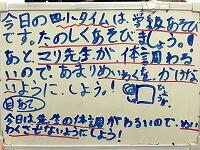 今日の四トタイムは、学級あそび
です。たのしくあそびましょう。!
あと、さり先まが、体調わる
いので、あまりめいわくを、かけな
いように、しよう。!
目あて
今日は先生の体調がわるいので、めい
わくさせないようにしよう!